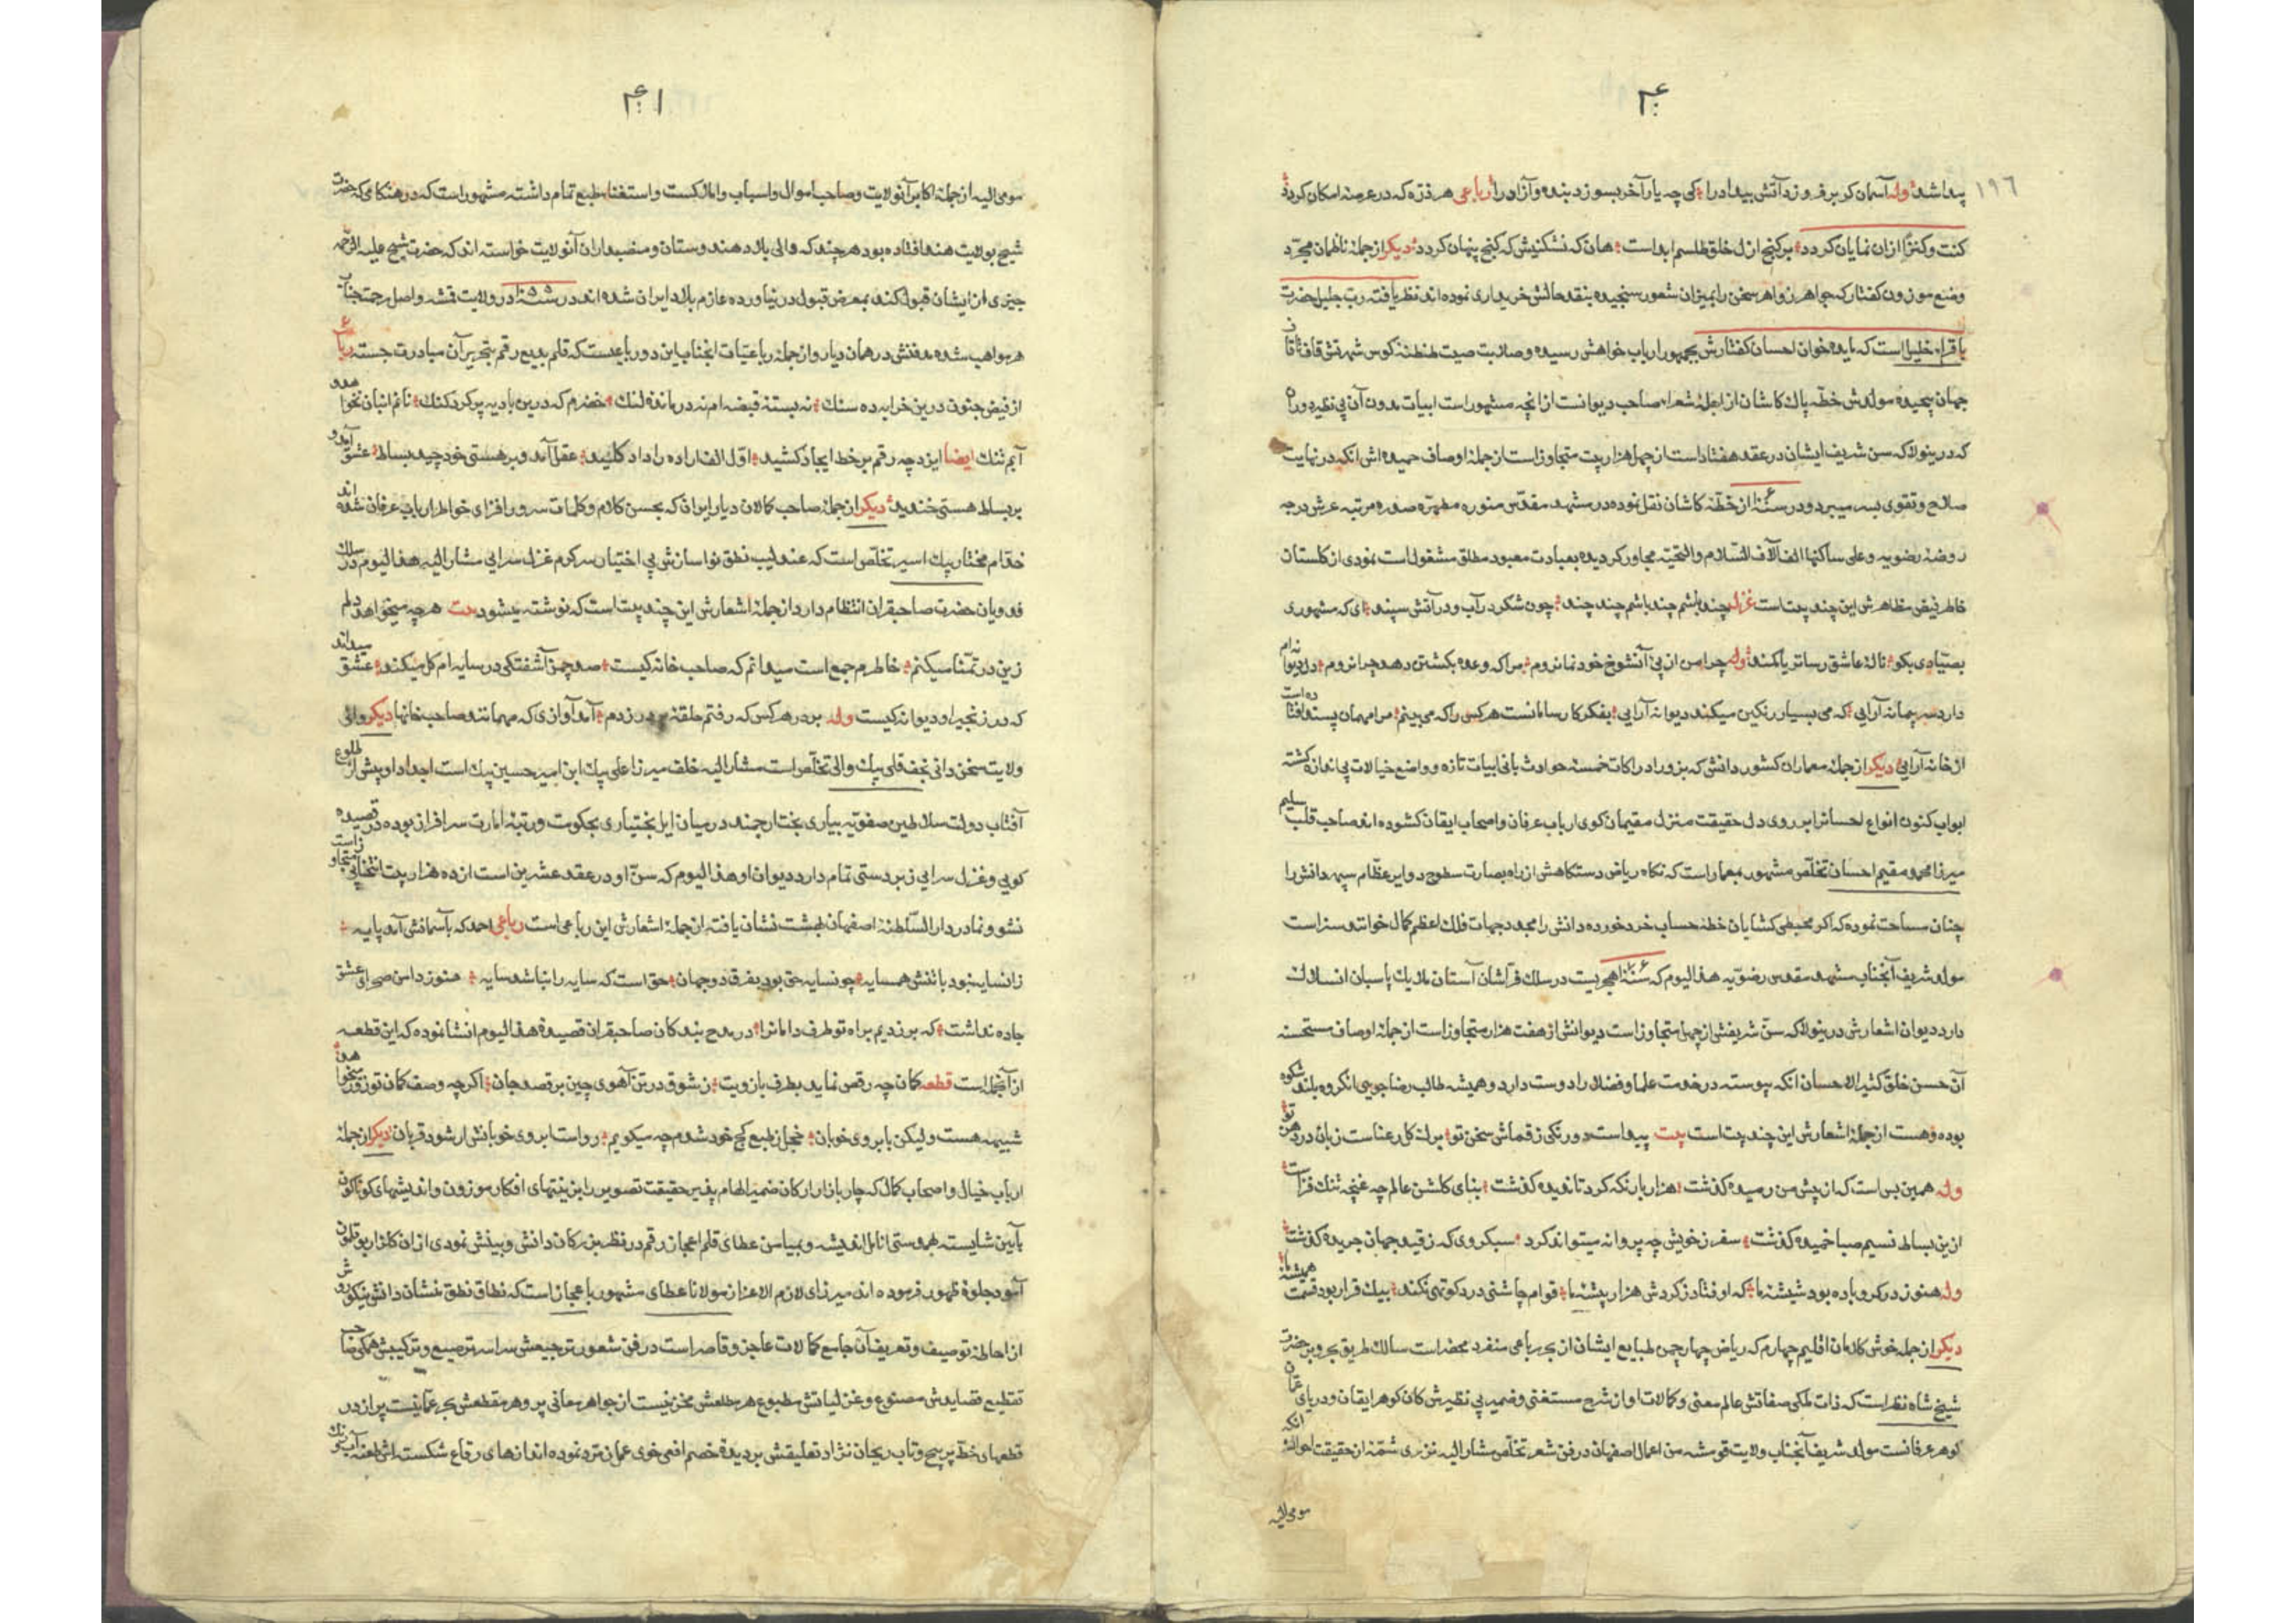 ۱۹۶
پیدا شد وله آسمان کر برفروزد آتش بیداد را کی چه یار آخر بسوزد بنده و آزاد را رباعی هر ذره که در عرصهٔ امکان کردد
کنت و کنزاً از ان نمایان کردد بر کنج ازل خلق طلسم ابداست هان که نشکنیش که کنج پنهان کردد دیکر از جمله ناظمان مجرد
وضع موزون کفتار که جواهر زواهر سخن را بمیزان شعور سنجیده بنقد حالش خریداری نموده اند نظریافتهٔ رب جلیل حضرت
باقراء خلیل است که مایده خوان احسان کفتارش بجمهور ارباب خواهش رسیده و صلابت صیت طنطنهٔ کوس شهرتش قاف تا قاف
جهان پیچیده مولدش خطهٔ پاک کاشان از اجلهٔ شعراء صاحب دیوانست از انچه مشهور است ابیات مدون آن بی نظیر دوران
که درینولا که سن شریف ایشان در عقد هفتاد است از چهل هزار بیت متجاوز است از جمله اوصاف حمیده اش انکه در نهایت
صلاح و تقوی بسر میبرد و در سنه از خطهٔ کاشان نقل نموده در مشهد مقدس منوره مطهره صدره مرتبه عرش درجه
روضهٔ رضویه و علی ساکنها الف الآف السلام والتحیة مجاور کردیده بعبادت معبود مطلق مشغول است نمودی از کلستان
خاطر فیض مظاهرش این چند بیت است غزل چند باشم چند باشم چند چند چون شکر در آب و در آتش سپند ای که مشهوری
بصیادی بکو نالهٔ عاشق رساتر یا کمند وله چرا من از پی آنشوخ خود نما نروم مرا که وعده بکشتن دهد چرا نروم دل دیوانه ام
دارد سر پیمانه آرایی که می بسیار رنکین میکند دیوانه آرایی بفکر کار سامانست هر کس را که می بینم مرا مهمان پسند افتاده است
از خانه آرایی دیکر از جمله معماران کشور دانش که بزور ادراکات خمسهٔ حوادث بانی ابیات تازه و واضع خیالات بی اندازه کشته
ابواب کنون انواع احسانرا بر روی دل حقیقت منزل مقیمان کوی ارباب عرفان و اصحاب ایقان کشوده اند صاحب قلب سلیم
میرزا محمد مقیم احسان تخلص مشهور بمعمار است که نکاه ریاض دستکاهش از راه بصارت سطوح دوایر عظام سپهر دانش را
چنان مساحت نموده که اکر محیطی کشایان خطهٔ حساب خرد خورده دانش را مجدد جهات فلک اعظم کمال خوانند سزاست
مولد شریف آنجناب مشهد مقدس رضویه هذا الیوم که سنه هجریست در سلک فراشان آستان ملایک پاسبان انسلاک
دارد دیوان اشعارش درینولا که سن شریفش از چهل متجاوز است دیوانش از هفت هزار متجاوز است از جمله اوصاف مستحسنه
آن حسن خلق کثیر الاحسان انکه پیوسته در خدمت علما و فضلا را دوست دارد و همیشه طالب رضا جویی انکروه بلند شکوه
بوده و هست از جمله اشعارش این چند بیت است بیت پیداست دو رنکی ز قماش سخن تو برک کل رعناست زبان در دهن تو
وله همین بس است که از پیش من رمیده کذشت هزار بار نکه کرد تا ندیده کذشت بنای کلشن عالم چه غنچه تنک فزاست
ازین بساط نسیم صبا خمیده کذشت سفر ز خویش چه پروانه میتواند کرد سبکروی که ز قید جهان جریده کذشت
وله هنوز در کرو باده بود شیشهٔ ما که اوفتاد ز کردش هزار پیشهٔ ما قوام چاشنی درد کوتهی نکند بیک قرار بود قسمت همیشهٔ ما
دیکر از جمله خوش کلامان اقلیم چهارم که ریاض چهار چمن طبایع ایشان از بحر رباعی منفرد محضر است سالک طریق بحر و بر حضرت
شیخ شاه نظر است که ذات ملکی صفاتش عالم معنی و کمالات او از شرح مستغنی و ضمیر بی نظیرش کان کوهر ایقان و دریای عمان
کوهر عرفانست مولد شریف آنجناب ولایت قومشه من اعمال اصفهان در فن شعر تخلص مشار الیه نزری شمهٔ از حقیقت احوال انکه
مومی الیه
مومی الیه از جملهٔ اکابر آنولایت و صاحب اموال و اسباب و املاکست و استغناء طبع تمام داشته مشهور است که در هنکامی که حضرت
شیخ بولایت هند افتاده بود هر چند که والی بلاد هندوستان و منصبداران آنولایت خواسته اند که حضرت شیخ علیه الرحمه
چیزی از ایشان قبول کند بمعرض قبول در نیاورده عازم بلاد ایران شده اند در سنه در ولایت قمشه واصل رحمت جناب
هو مواهب شده مدفنش در همان دیار و از جمله رباعیات انجناب این دو رباعیست که قلم بدیع رقم بتحریر آن مبادرت جسته رباعی
از فیض جنون درین خرابه ده سنک نه بستهٔ قبضه ام نه در ماندهٔ لنک خضرم که درین بادیه پر کرد کنک نانم انبان نخواهد و
آبم تنک ایضا ایزد چه رقم بر خط ایجاد کشید اول الف اراده را داد کلید عقل آمد و بر هستی خود چید بساط عشق آمد و
بر بساط هستی خندید دیکر از جمله صاحب کمالان دیار ایران که بحسن کلام و کلمات سرور افزای خواطر ارباب عرفان شده اند
خدام مختار بیک اسیر تخلص است که عندلیب نطق نواسازش بی اختیار سرکرم غزل سرایی مشار الیه هذا الیوم در سلک
فدویان حضرت صاحبقران انتظام دارد از جمله اشعارش این چند بیت است که نوشته میشود بیت هر چه میخواهد دلم
زین در تمنا میکنم خاطرم جمع است میدانم که صاحب خانه کیست صد چمن آشفتکی در سایه ام کل میکند عشق میداند
که در زنجیر او دیوانه کیست وله بر در هر کس که رفتم حلقه بر در زدم آمد آوازی که مهمانند صاحب خانها دیکر والی
ولایت سخن دانی نجف قلی بیک والی تخلص است مشار الیه خلف میرزا علی بیک ابن امیر حسین بیک است اجداد او پیش از طلوع
آفتاب دولت سلاطین صفویه بیاری بخت ارجمند در میان ایل بختیاری بحکومت و رتبهٔ امارت سرافراز بوده در قصیده
کویی و غزل سرایی زبر دستی تمام دارد دیوان او هذا الیوم که سن او در عقد عشرین است از ده هزار بیت متجاوز است
نشو و نما در دار السلطنهٔ اصفهان بهشت نشان یافته از جملهٔ اشعارش این رباعی است رباعی احمد که بآسمانش آمد پایه
زانسایه نبود با تنش همسایه چو نسایه حق بود بفرق دو جهان حق است که سایه را نباشد سایه هنوز دامن صحرای عشق
جاده نداشت که برزدیم براه تو طرف دامانرا در مدح بندکان صاحبقران قصیدهٔ هذا الیوم انشا نموده که این قطعه
از آنجمله است قطعه کمان چه رقص نماید بطرف بازویت ز شوق در تن آهوی چین برقصد جان اکر چه وصف کمان تو زور میخواهد
شبیه هست و لیکن بابروی خوبان خجل ز طبع کج خود شدم چه میکویم رواست ابروی خوبانش ار شود قربان دیکر از جمله
ارباب خیال و اصحاب کمال که چار بازار ارکان ضمیر الهام پذیر حقیقت تصویر را بزینتهای افکار موزون و اندیشهای کوناکون
بآیین شایسته بهمدستی انامل اندیشه و بمیامن عطای قلم اعجاز رقم در نظر بزرکان دانش و بینش نمودی از ان کلزار بوقلمون
آسود جلوهٔ ظهور فرموده اند میرزای لازم الاعزاز مولانا عطای مشهور باعجاز است که نطاق نطق نشان دانش نیکو روش
از احاطهٔ توصیف و تعریف آن جامع کمالات عاجز و قاصر است در فن شعور ترجیعش سراسر ترصیع و ترکیبش همکی صاحب
تقطیع قصایدش مصنوع و غزلیاتش مطبوع هر مطلعش مخزنیست از جواهر معانی پر و هر مقطعش بحر عمانیست پر از در
قطعهای خط پر پیچ و تاب ریحان نژاد تعلیقش بر دیدهٔ خصم افعی خوی عمان تردد نموده اندازهای رقاع شکسته اش طعنه